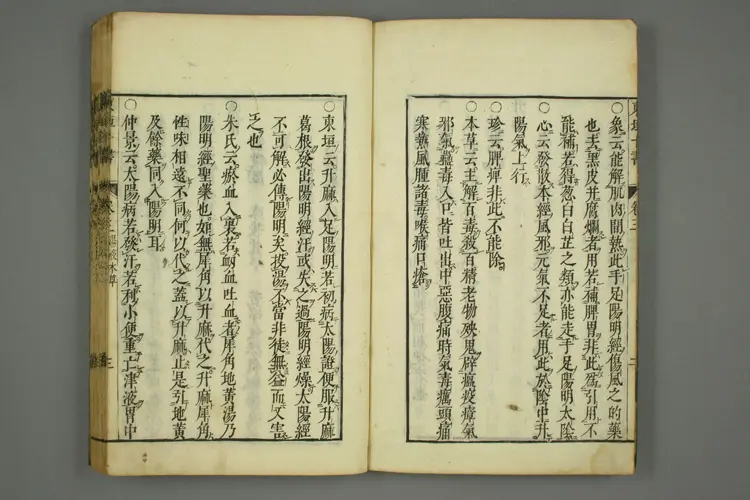 ○象云能解肌肉間熱此手足陽明經傷風之的藥
也去黑皮并腐爛者用若補脾胃非此爲引用不
能補若得葱白白芷之類亦能走手足陽明太陰
○心云發散本經風邪元氣不足者用此於陰中升
陽氣上行
○珍云脾痺非此不能除
○本草云主解百毒殺百精老物殃鬼辟瘟疫瘴氣
邪氣蠱毒入口皆吐出中惡腹痛時氣毒癘頭痛
寒熱風腫諸毒喉痛口瘡
東垣十書
卷三
○東垣云升麻入足陽明若初病太陽證便服升麻
葛根發出陽明經汗或失之過陽明經燥太陽經
不可解必傳陽明矣投湯不當非徒無益而又害
之也
○朱氏云瘀血入裏若衄血吐血者犀角地黃湯乃
陽明經聖藥也如無犀角以升麻代之升麻犀角
性味相遠不同何以代之蓋以升麻止是引地黃
及餘藥同入陽明耳
○仲景云太陽病若發汗若利小便重亡津液胃中